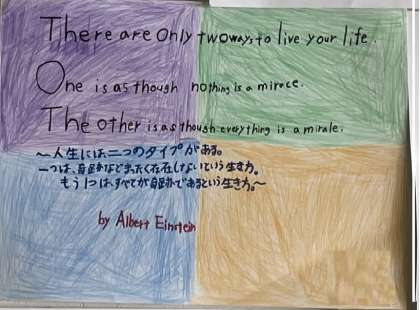 There are only two ways to live your life.
One is as though nothing is a mirace.
The other is as though everything is a mirale.
〜人生には、二つのタイプがある。
一つは、自足かなどまったく存在しないという生き方。
もう1つは、すべてが自足かであるという生き方。〜
by Albert Einstein